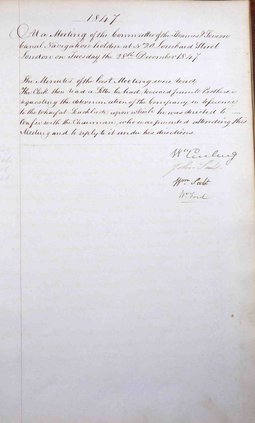 1847
At a Meeting of the Committee of the Thames & Severn
Canal Navigation holden at No 20 Lombard Street
London on Tuesday the 28th December 1847
The Minutes of the last Meeting were read,
The Clerk then read a Letter he had received from
requesting the determination of the Company in reference
to the Wharf at Lechlade upon which he was directed to
confer with the Chairman, who was prevented attending this
Meeting and to reply to it under his directions.
Wm
John
Wm Scott
Wm Ford